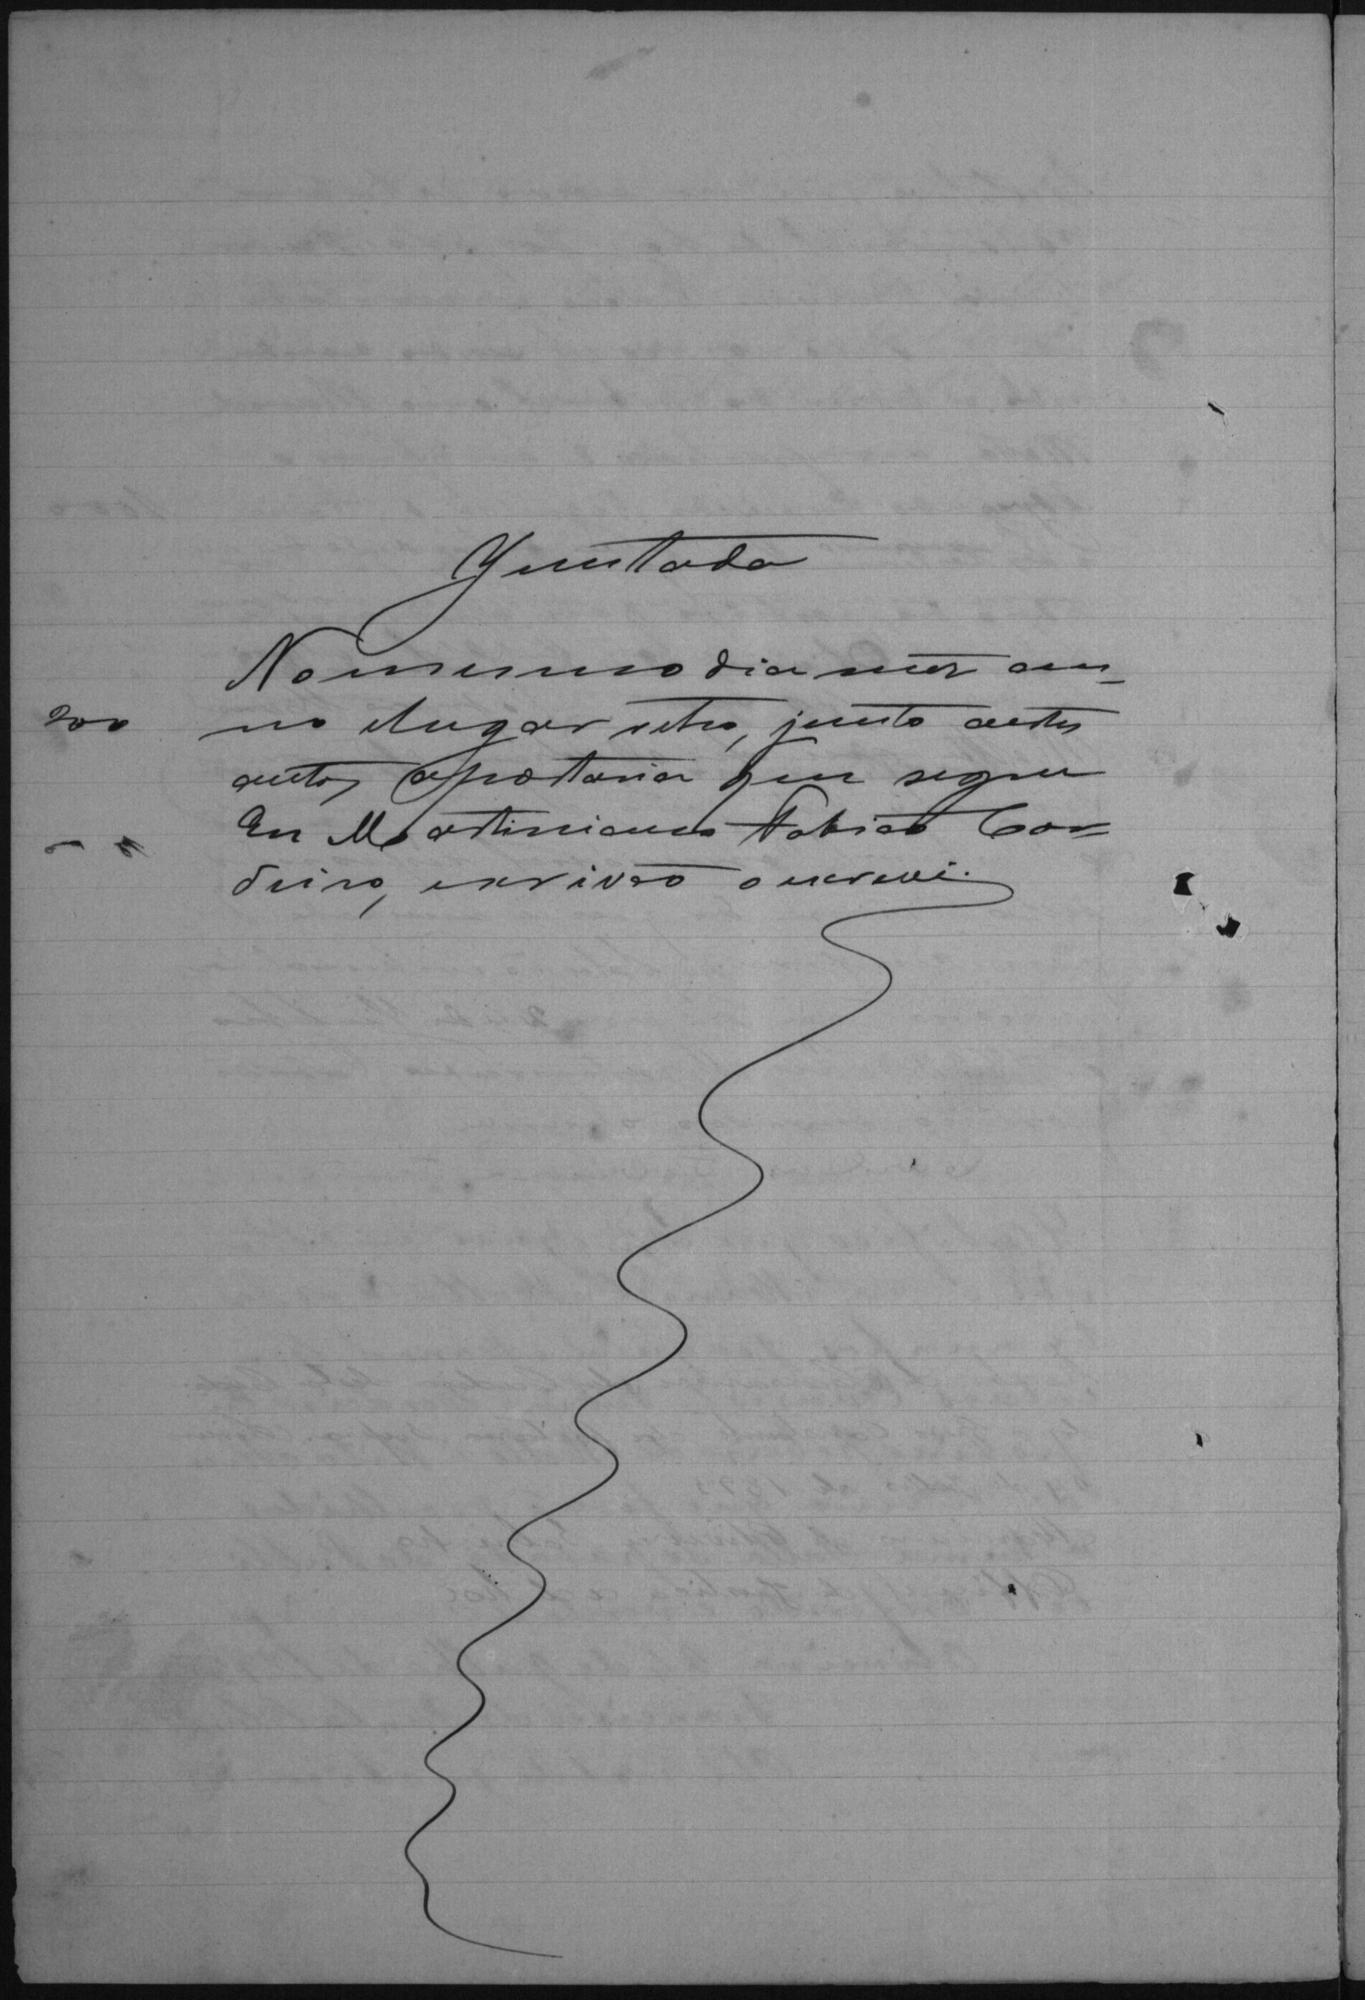 Juntada
No mesmo dia mez an-
200
no e lugar retro, junto a estes
autos a portaria que segue
Eu Martiniano Fabião Cor-
deiro, escrivão o escrevi.